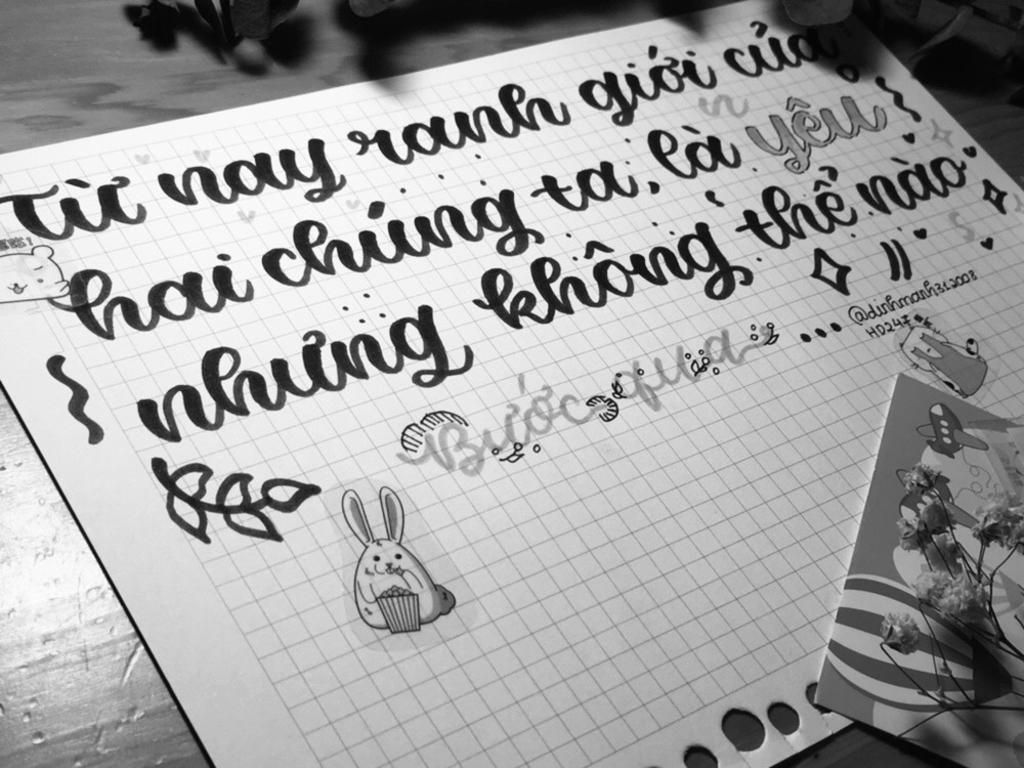 Từ nay ranh giới của
hai chúng ta, là yêu
nhưng không thể nào
Bước qua...
@dinhmanh312003
HD247